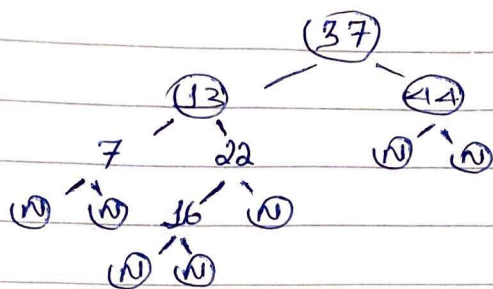 37
13 44
7 22 N N
N N 16 N
N N